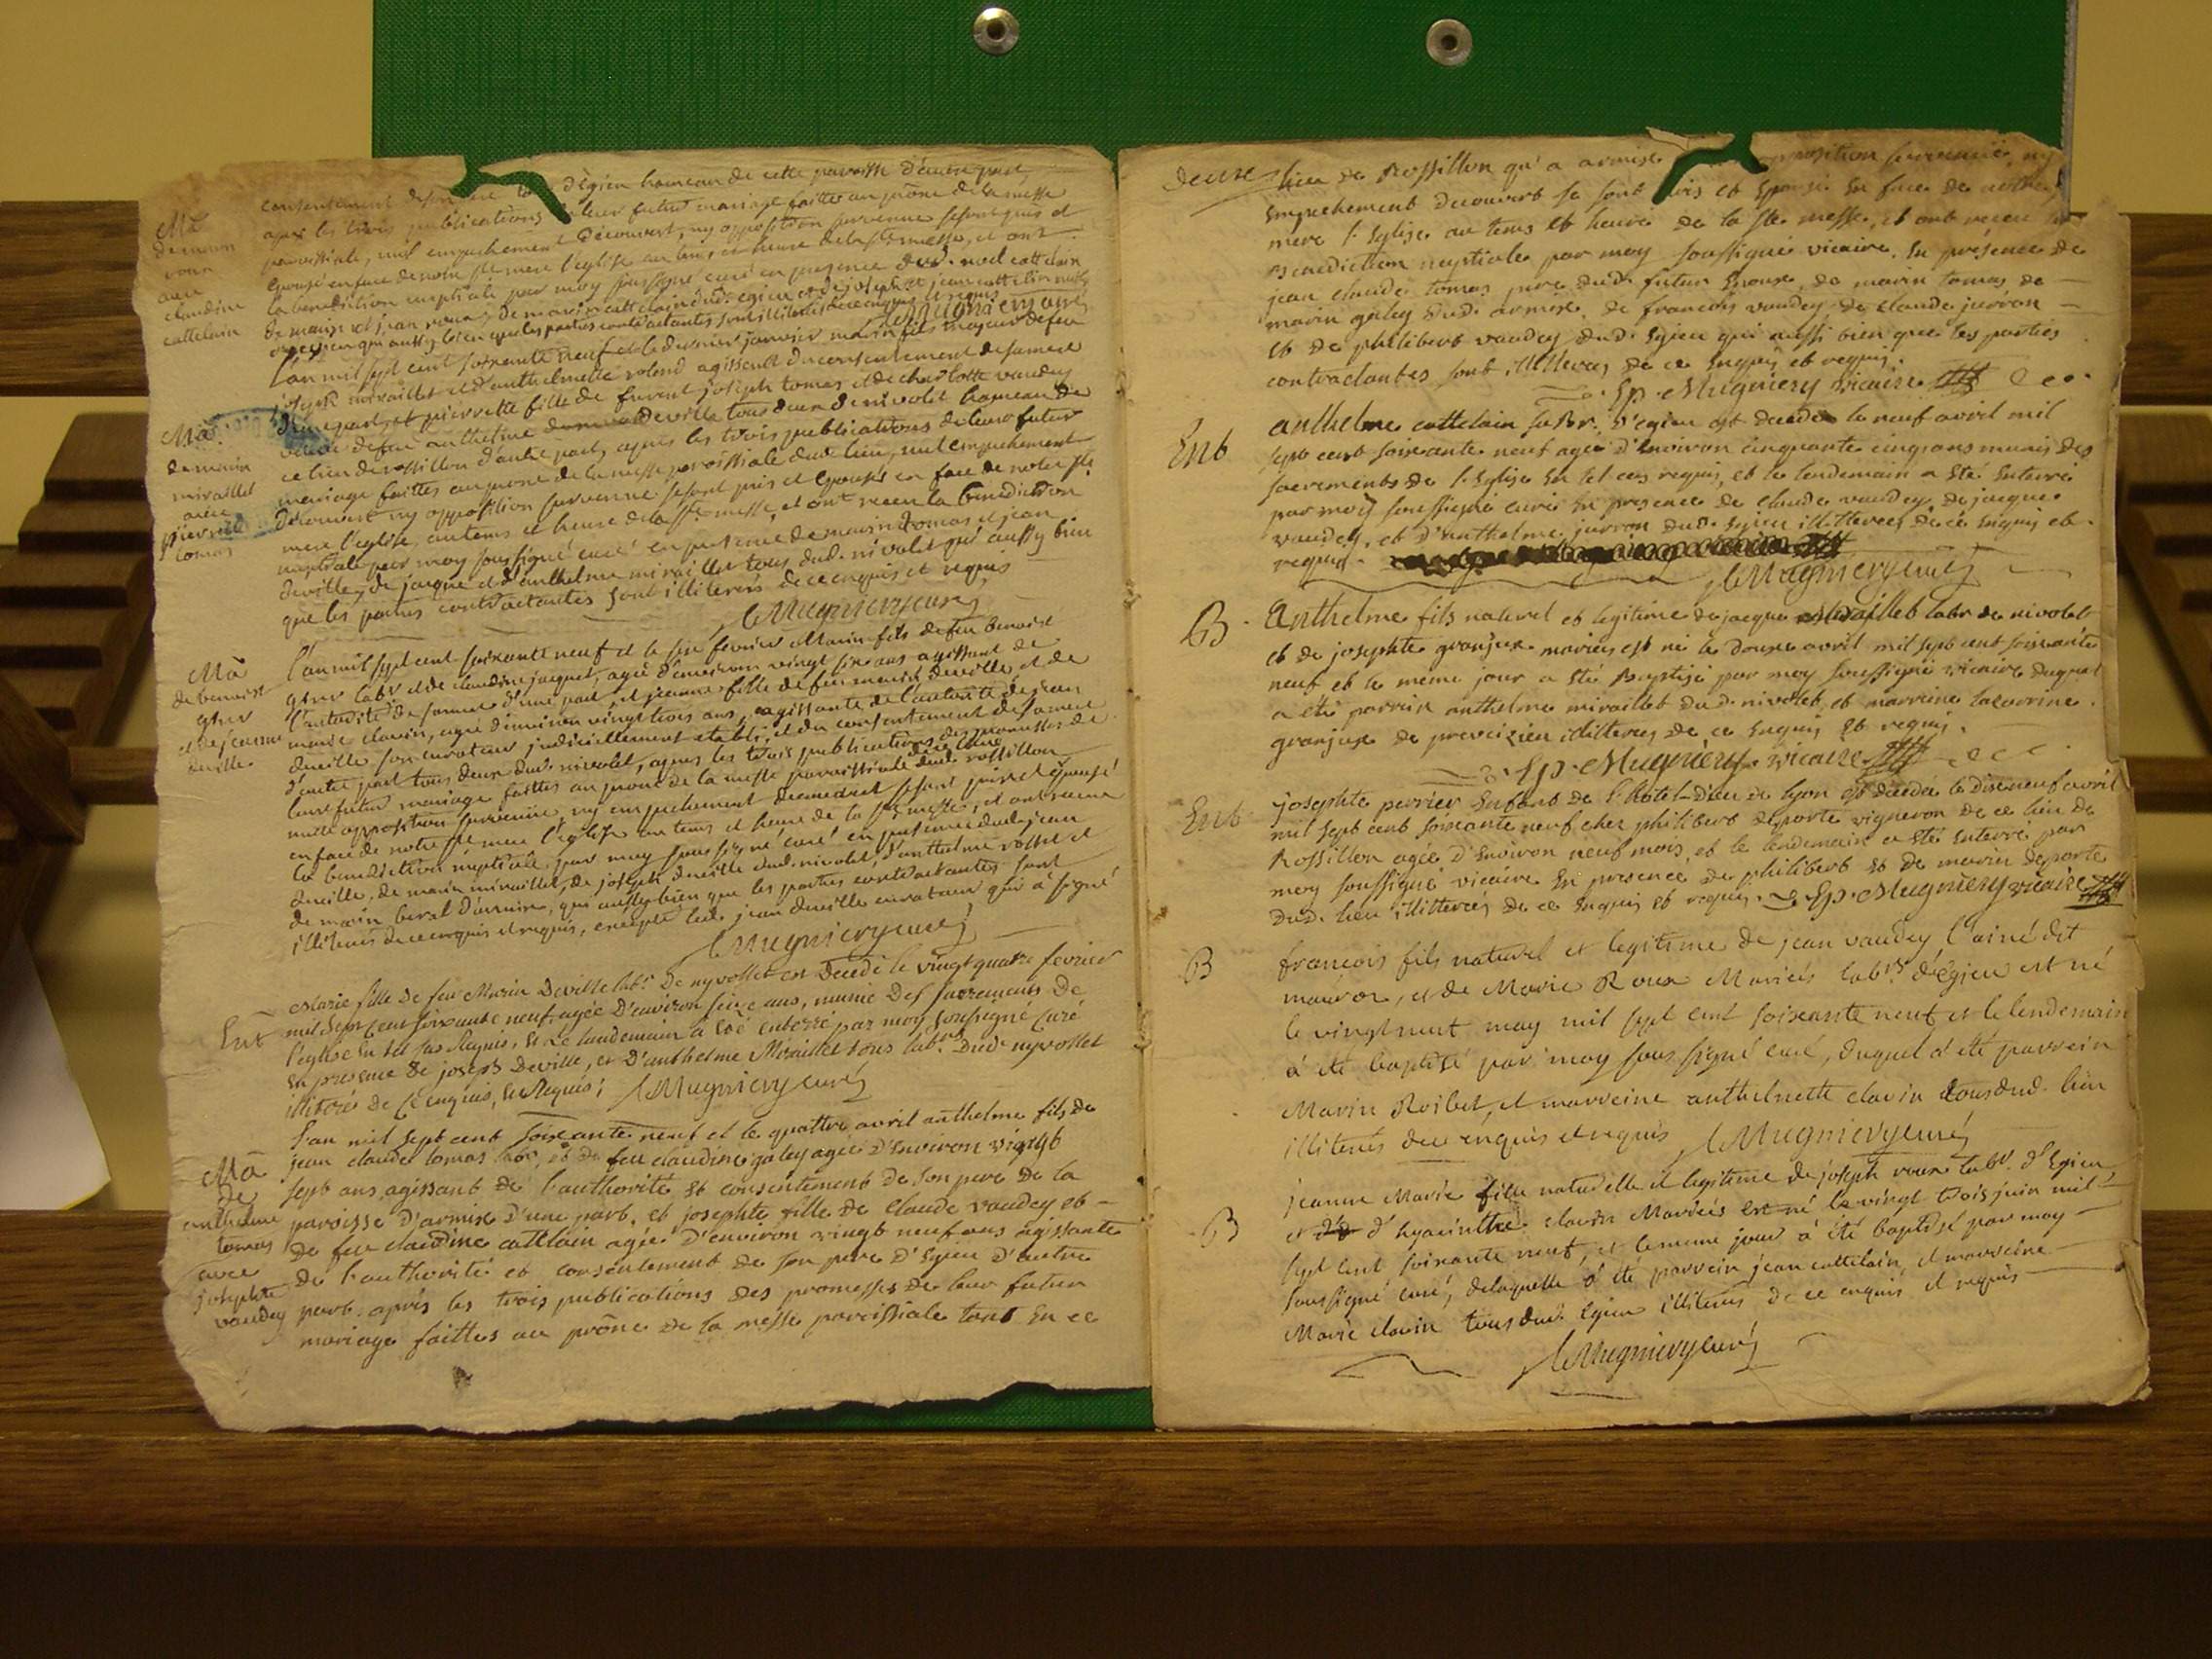 consentement de son d'Egieu hameau de cette paroisse d'autre part
apres les trois publications de leur futur mariage faittes au prône de la messe
paroissiale, nul empechement decouvert, ny opposition survenue se sont pris et
épousé en face de notre ste mere l'eglise au tems et heure de la ste messe, et ont
la benediction nuptiale par moy soussigné curé en presence dud. noel cattelain
de marin et jean roux, de marin cattelain dud. egieu et de joseph et jean cattelain
qui aussy bien que les parties contractantes sont illiterés de ce enquis et requis
Mugniery curé
Mâ
de marin
roux
avec
claudine
cattelain
L'an mil sept cent soixante neuf et le dernier janvier marin fils majeur de feu
joseph miraillet et d'anthelmette rolond agissant du consentement de sa mere
d'une part, et pierrette fille de furent joseph tomas et de charlotte vaudey
veuve de feu anthelme deville tous deux de nivolet hameau de
ce lieu de rossillon d'autre part, apres les trois publications de leur futur
mariage faittes au prone de la messe paroissiale dud. lieu, nul empechement
decouvert ny opposition survenue se sont pris et epousés en face de notre ste
mere l'eglise, au tems et heure de la ste messe, et ont receu la benediction
nuptiale par moy soussigné curé en presence de marin tomas, et jean
deville, de jacque et d'anthelme miraillet tous dud. nivolet qui aussy bien
que les parties contractantes sont illiterés de ce enquis et requis
Mugniery curé
Mâ
de marin
miraillet
avec
pierrette
tomas
L'an mil sept cent soixante neuf et le six fevrier Marin fils de feu benoist
gener labr et de claudine jacquet, agé d'environ vingt six ans agissant de
l'autorité de sa mere d'une part, et jeanne fille de feu marin deville, et de
marie clavin, agée d'environ vingt trois ans, agissante de l'autorité de jean
deville son curateur judiciellement etabli, et du consentement de sa mere
d'autre part tous deux dud. nivolet, apres les trois publications des promesses de
leur futur mariage faittes au prone de la messe paroissiale dud. rossillon
nulle opposition survenue, ny empechement decouvert se sont pris et epousé
en face de notre ste mere l'eglise au tems et heure de la ste messe, et ont receu
la benediction nuptiale, par moy soussigné curé en presence dud. jean
deville, de marin miraillet, de joseph deville dud. nivolet, d'anthelme rosset et
de marin beral d'armix, qui aussy bien que les parties contractantes sont
illiterés de ce enquis et requis, excepté led. jean deville curateur qui a signé
Mugniery curé
Mâ
de benoist
gener
et de jeanne
deville
Marie fille de feu Marin Deville labr. de nyvollet est decedé le vingt quatre fevrier
Ent
mil sept cent soixante neuf, agée d'environ seize ans, munie des sacrements de
l'eglise en tel cas requis, et le landemain a été enterré par moy soussigné curé
en presence de joseph Deville, et d'anthelme Miraillet tous labrs. dud. nyvollet
illiterés de ce enquis, et requis; Mugniery curé
L'an mil sept cent soixante neuf et le quattre avril anthelme fils de
jean claude tomas labr, et de feu claudine galey agée d'environ vingt
sept ans agissant de l'authorité et consentement de son pere de la
paroisse d'armix d'une part, et josephte fille de claude vaudey et
de feu claudine cattlain agée d'environ vingt neuf ans agissante
de l'authorité et consentement de son pere d'Egieu d'autre
part. après les trois publications des promesses de leur futur
mariage faittes au prône de la messe paroissiale tant en ce
Mâ
de
anthelme
tomas
avec
josephte
vaudey
lieu de Rossillon qu'a armix opposition survenuë, ny
empechement decouvert se sont pris et epousé en face de nôtre
mere l'Eglise au tems et heure de la ste messe, et ont receu la
benediction nuptiale par moy soussigné vicaire. En présence de
jean claude tomas pere dud. futur Epoux, de marin tomas de
marin galey dud. armix. de francois vaudey, de claude jurron
et de philibert vaudey dud. Egieu qui aussi bien que les parties
contractantes sont illitterés de ce enquis et requis.
Sp. Mugniery vicaire
Ent
anthelme cattelain labr. d'egieu est decedé le neuf avril mil
sept cent soixante neuf agé d'environ cinquante cinq ans munis des
sacrements de l'Eglise en tel cas requis, et le lendemain a été enterré
par moy soussigné curé en presence de claude vaudey, de jacque
vaudey, et d'anthelme jurron dud. Egieu illitterés de ce enquis et
requis.
Mugniery curé
B
Anthelme fils naturel et legitime de jacque Miraillet labr de nivolet
et de josephte granjux mariés est né le douze avril mil sept cent soixante
neuf et le même jour a été baptisé par moy soussigné vicaire duquel
a été parrin anthelme miraillet dud. nivolet, et marreine
granjux de illitterés de ce enquis et requis.
Sp. Mugniery vicaire
Ent
josephte perrier Enfant de l'hotel-Dieu de lyon est decedée le dixneuf avril
mil sept cent soixante neuf chez philibert deporte vigneron de ce lieu de
Rossillon agée d'environ neuf mois, et le lendemain a été enterré par
moy soussigné vicaire en presence de philibert et de marin deporte
dud. lieu illitterés de ce enquis et requis. Sp. Mugniery vicaire
B
francois fils naturel et legitime de jean vaudey l'ainé dit
et de Marie Roux Mariés labrs. d'égieu est né
le vingt neuf may mil sept cent soixante neuf et le lendemain
à été baptisé par moy soussigné curé, duquel a été parrein
Marin Roibet, et marreine anthelmette clavin tous dud. lieu
illiterés de ce enquis et requis Mugniery curé
B
jeanne Marie fille naturelle et legitime de joseph roux labr. d'Egieu
et d'hyacinthe clavin Mariés est né le vingt trois juin mil
sept cent soixante neuf, et le meme jour à été baptisé par moy
soussigné curé, de laquelle à été parrein jean cattelain, et marreine
Marie clavin tous dud. Egieu illiterés de ce enquis et requis
Mugniery curé